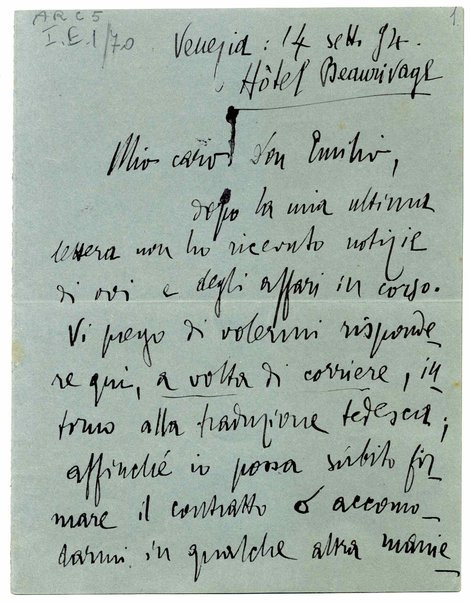 ARC 5
I.E.1/70
1.
Venezia: 14 sett. 94.
Hôtel Beaurivage
Mio caro Don Emilio,
dopo la mia ultima
lettera non ho ricevuto notizie
di voi e degli affari in corso.
Vi prego di volermi risponde-
re qui, a volta di corriere, in-
torno alla traduzione tedesca;
affinché io possa subito fir-
mare il contratto o accomo-
darmi in qualche altra manie